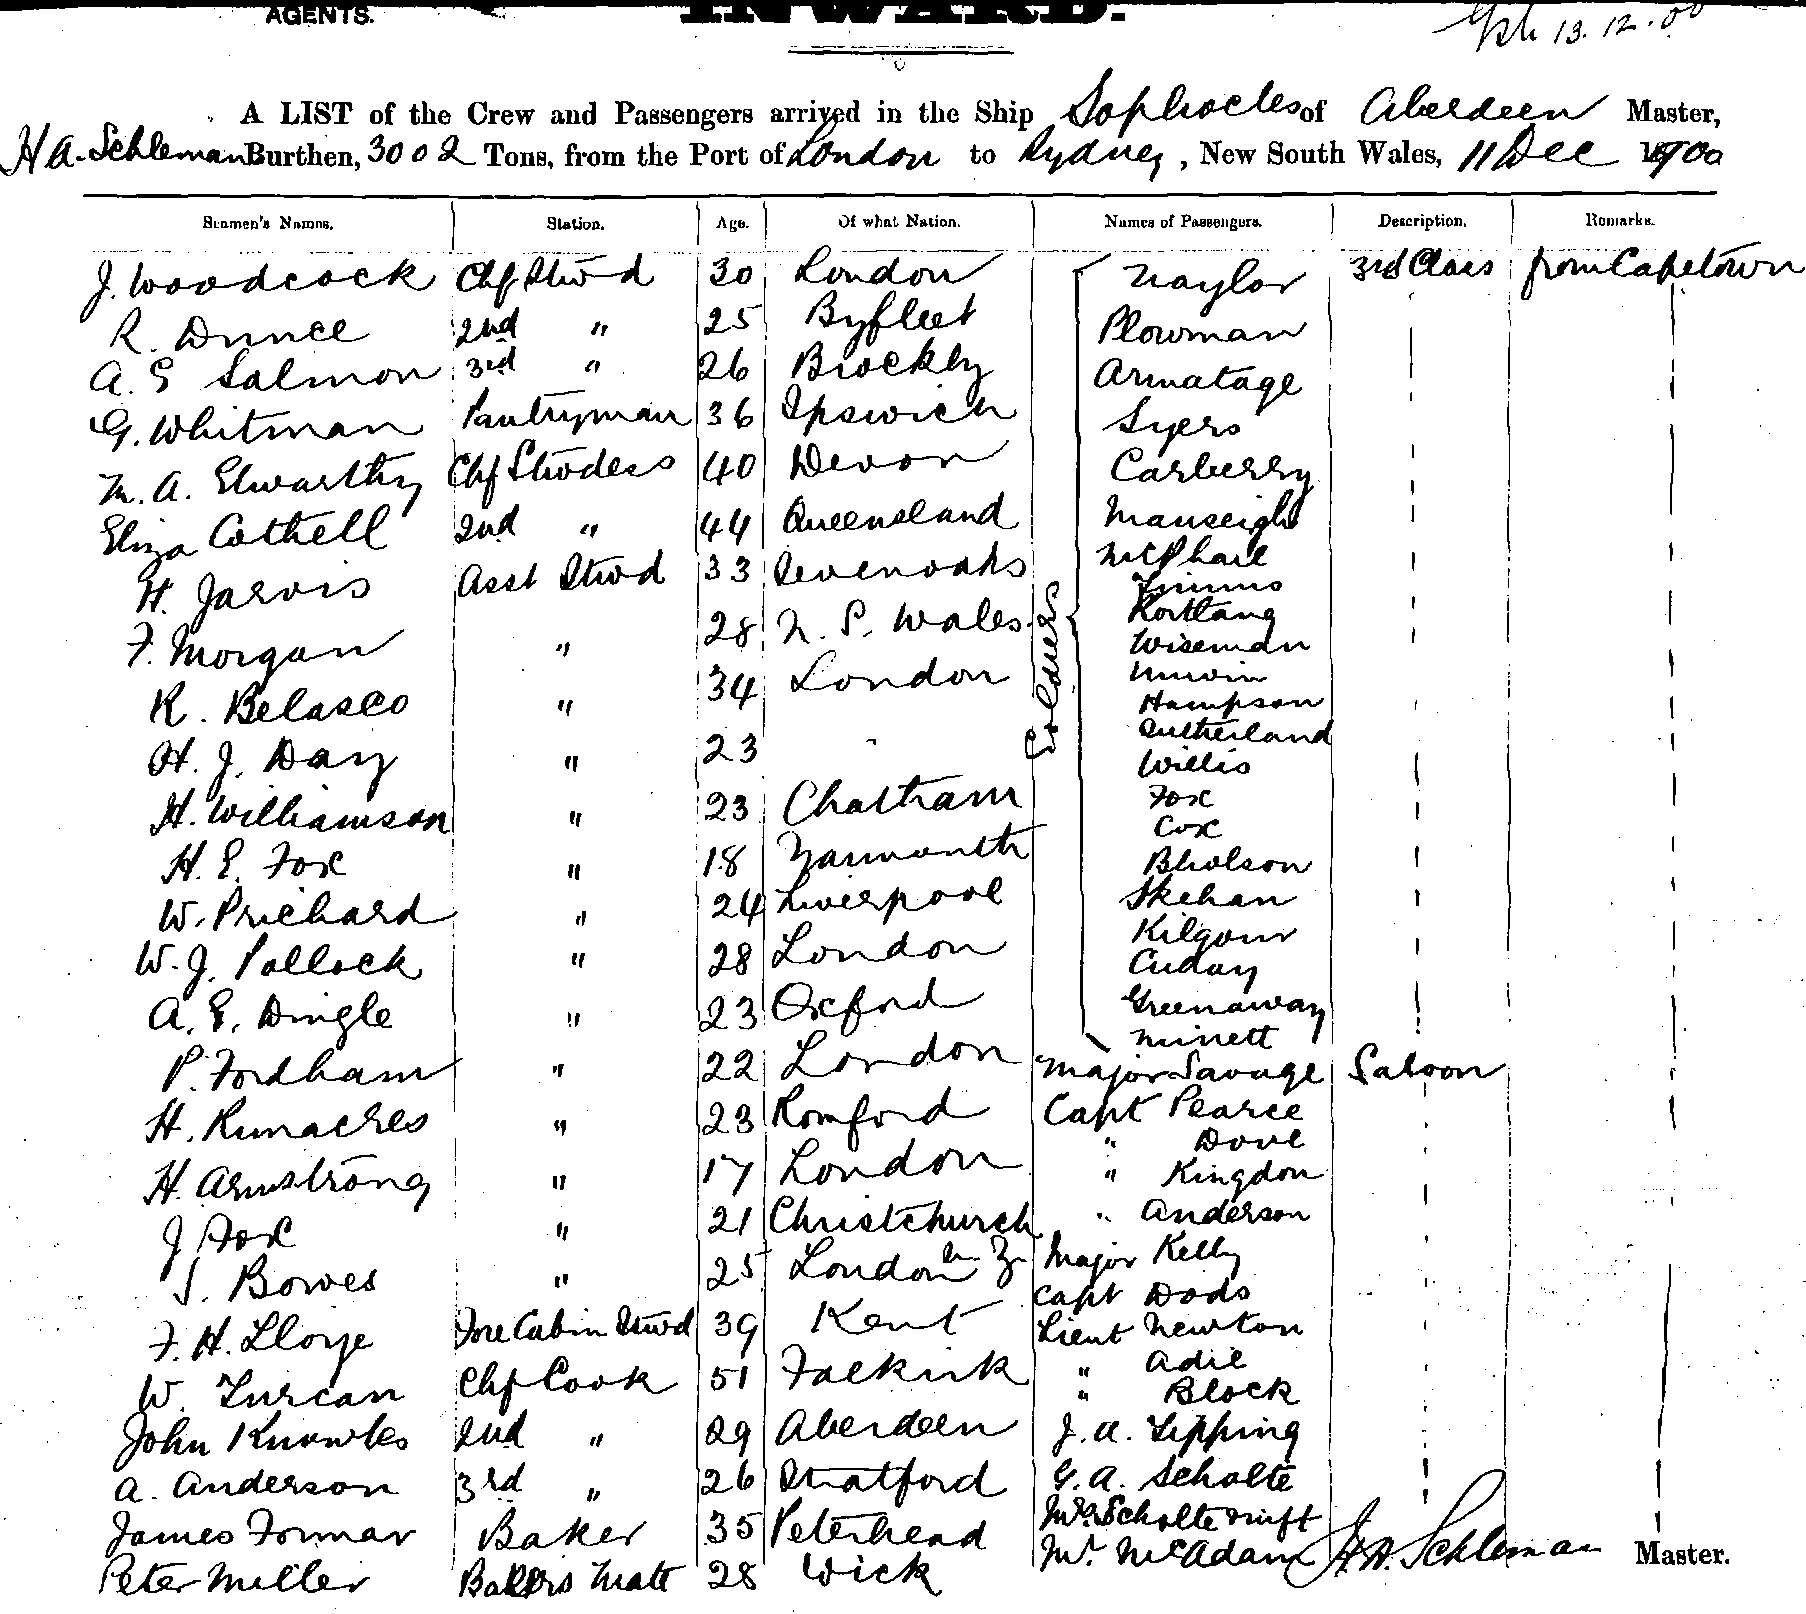 AGENTS. INWARD.
13.12.00
A LIST of the Crew and Passengers arrived in the Ship Sophocles of Aberdeen Master,
H A. Schleman Burthen, 3002 Tons, from the Port of London to Sydney, New South Wales, 11 Dec 1900
Seamen's Names. Station. Age. Of what Nation. Names of Passengers. Description. Remarks.
J. Woodcock Chf Stwd 30 London Naylor 3rd Class from Capetown
R. Dunce 2nd " 25 Byfleet Plowman
A. E Salmon 3rd " 26 Brockley Armatage
G. Whitman Pantryman 36 Ipswich Syers
M. A. Elwarthy Chf Stwdess 40 Devon Carberry
Eliza Cothell 2nd " 44 Queensland Manseigh
H. Jarvis Asst Stwd 33 Sevenoaks McPhail
Timms
F. Morgan " 28 N. S. Wales Kortlang
Wiseman
R. Belasco " 34 London Unwin
Hampson
Soldiers
H. J. Day " 23 " Sutherland
Willis
H. Williamson " 23 Chatham Fox
Cox
H. E. Fox " 18 Yarmouth Bholson
W. Prichard " 24 Liverpool Skehan
W. J. Pollock " 28 London Kilgour
Cuday
A. E. Dingle " 23 Oxford Greenaway
Minett
P. Fordham " 22 London Major Savage Saloon
H. Runacres " 23 Romford Capt Pearce
" Dove
H. Armstrong " 17 London " Kingdon
J Fox " 21 Christchurch N Z " Anderson
S. Bowes " 25 London Major Kelly
Capt Dods
F. H. Lloye Fore Cabin Stwd 39 Kent Lieut Newton
" Adie
W. Turcan Chf Cook 51 Falkirk " Block
John Knowles 2nd " 29 Aberdeen J. A. Tipping
A. Anderson 3rd " 26 Stratford G. A. Scholte
James Formar Baker 35 Peterhead Mrs Scholte & inft
Peter Miller Bakers Matt 28 Wick Mr. McAdam H. A. Schleman Master.